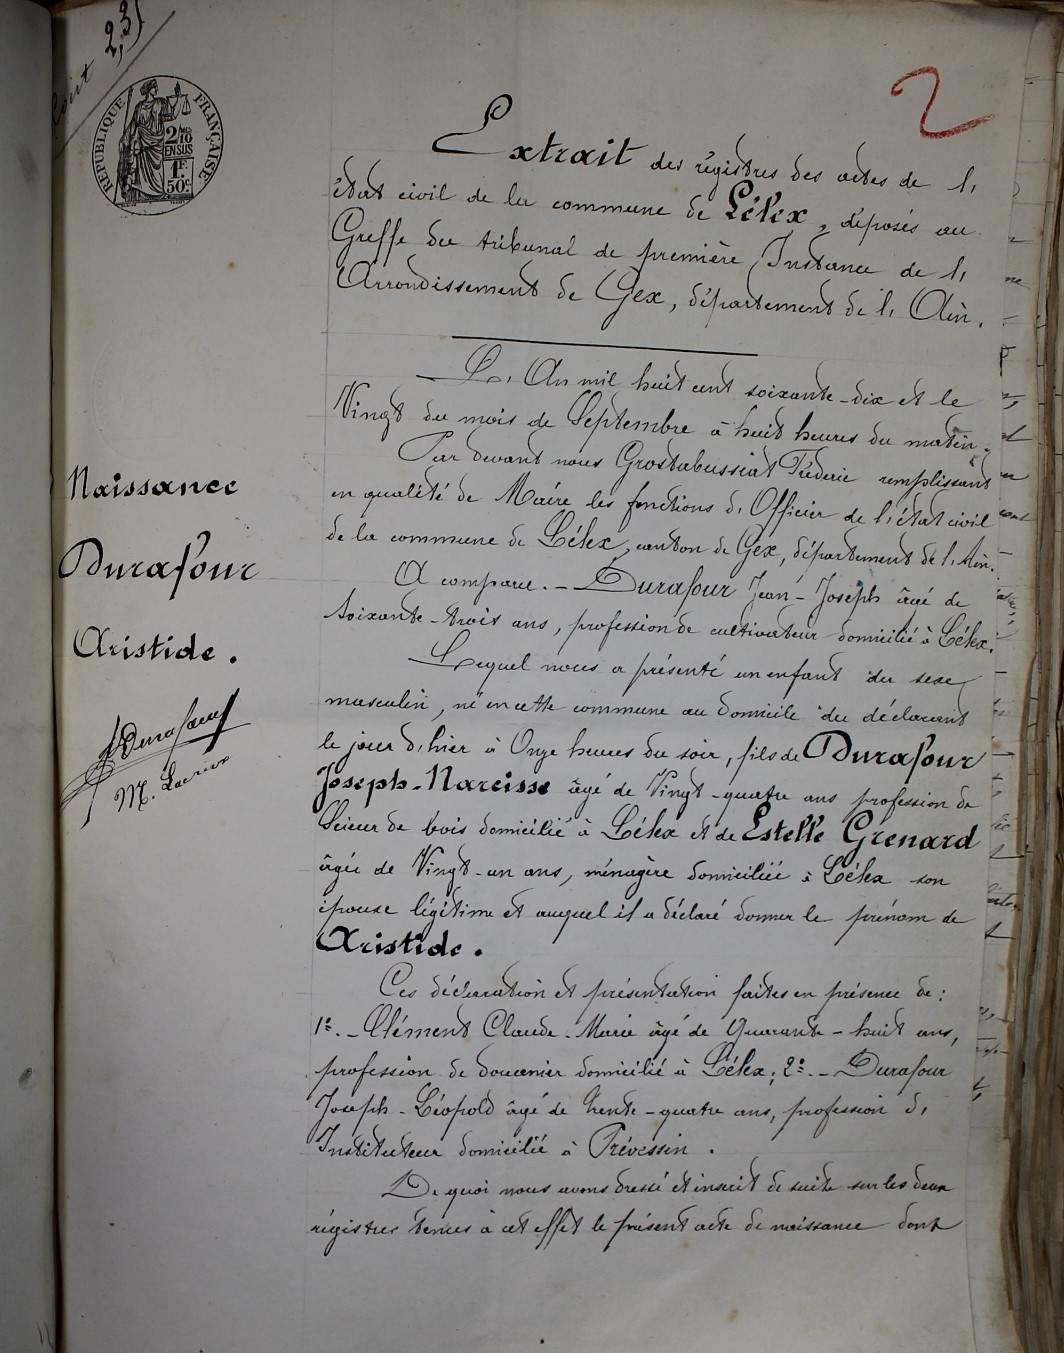 Coût 2,35
2
RÉPUBLIQUE FRANÇAISE
2/10
EN SUS
1F.
50c
Extrait des régistres des actes de l,
état civil de la commune de Lélex, déposés au
Greffe du tribunal de première Instance de l,
Arrondissement de Gex, département de l, Ain.
L, An mil huit cent soixante-dix et le
Vingt du mois de Septembre à huit heures du matin.
Par devant nous Grostabussiat Féderic remplissant
en qualité de Maire les fonctions d, Officier de l, état civil
de la commune de Lélex, canton de Gex, département de l, Ain.
A comparu. - Durafour Jean-Joseph âgé de
soixante-trois ans, profession de cultivateur domicilié à Lélex.
Lequel nous a présenté un enfant du sexe
masculin, né en cette commune au domicile du déclarant
le jour d, hier à Onze heures du soir, fils de Durafour
Joseph-Narcisse âgé de Vingt-quatre ans profession de
Scieur de bois domicilié à Lélex et de Estelle Grenard
âgée de Vingt-un ans, ménagère domiciliée à Lélex son
épouse légitime et auquel il a déclaré donner le prénom de
Aristide.
Ces déclaration et présentation faites en présence de :
1º. - Clément Claude-Marie âgé de Quarante-huit ans,
profession de douanier domicilié à Lélex ; 2º. - Durafour
Joseph-Léopold âgé de trente-quatre ans, profession d,
Instituteur domicilié à Prévessin.
De quoi nous avons dressé et inscrit de suite sur les deux
régistres tenus à cet effet le présent acte de naissance dont
Naissance
Durafour
Aristide.
Durafour
M. Lacroix